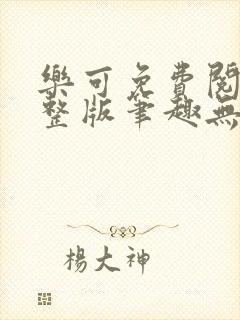 樂可免費閱
整版筆趣無
楊大神